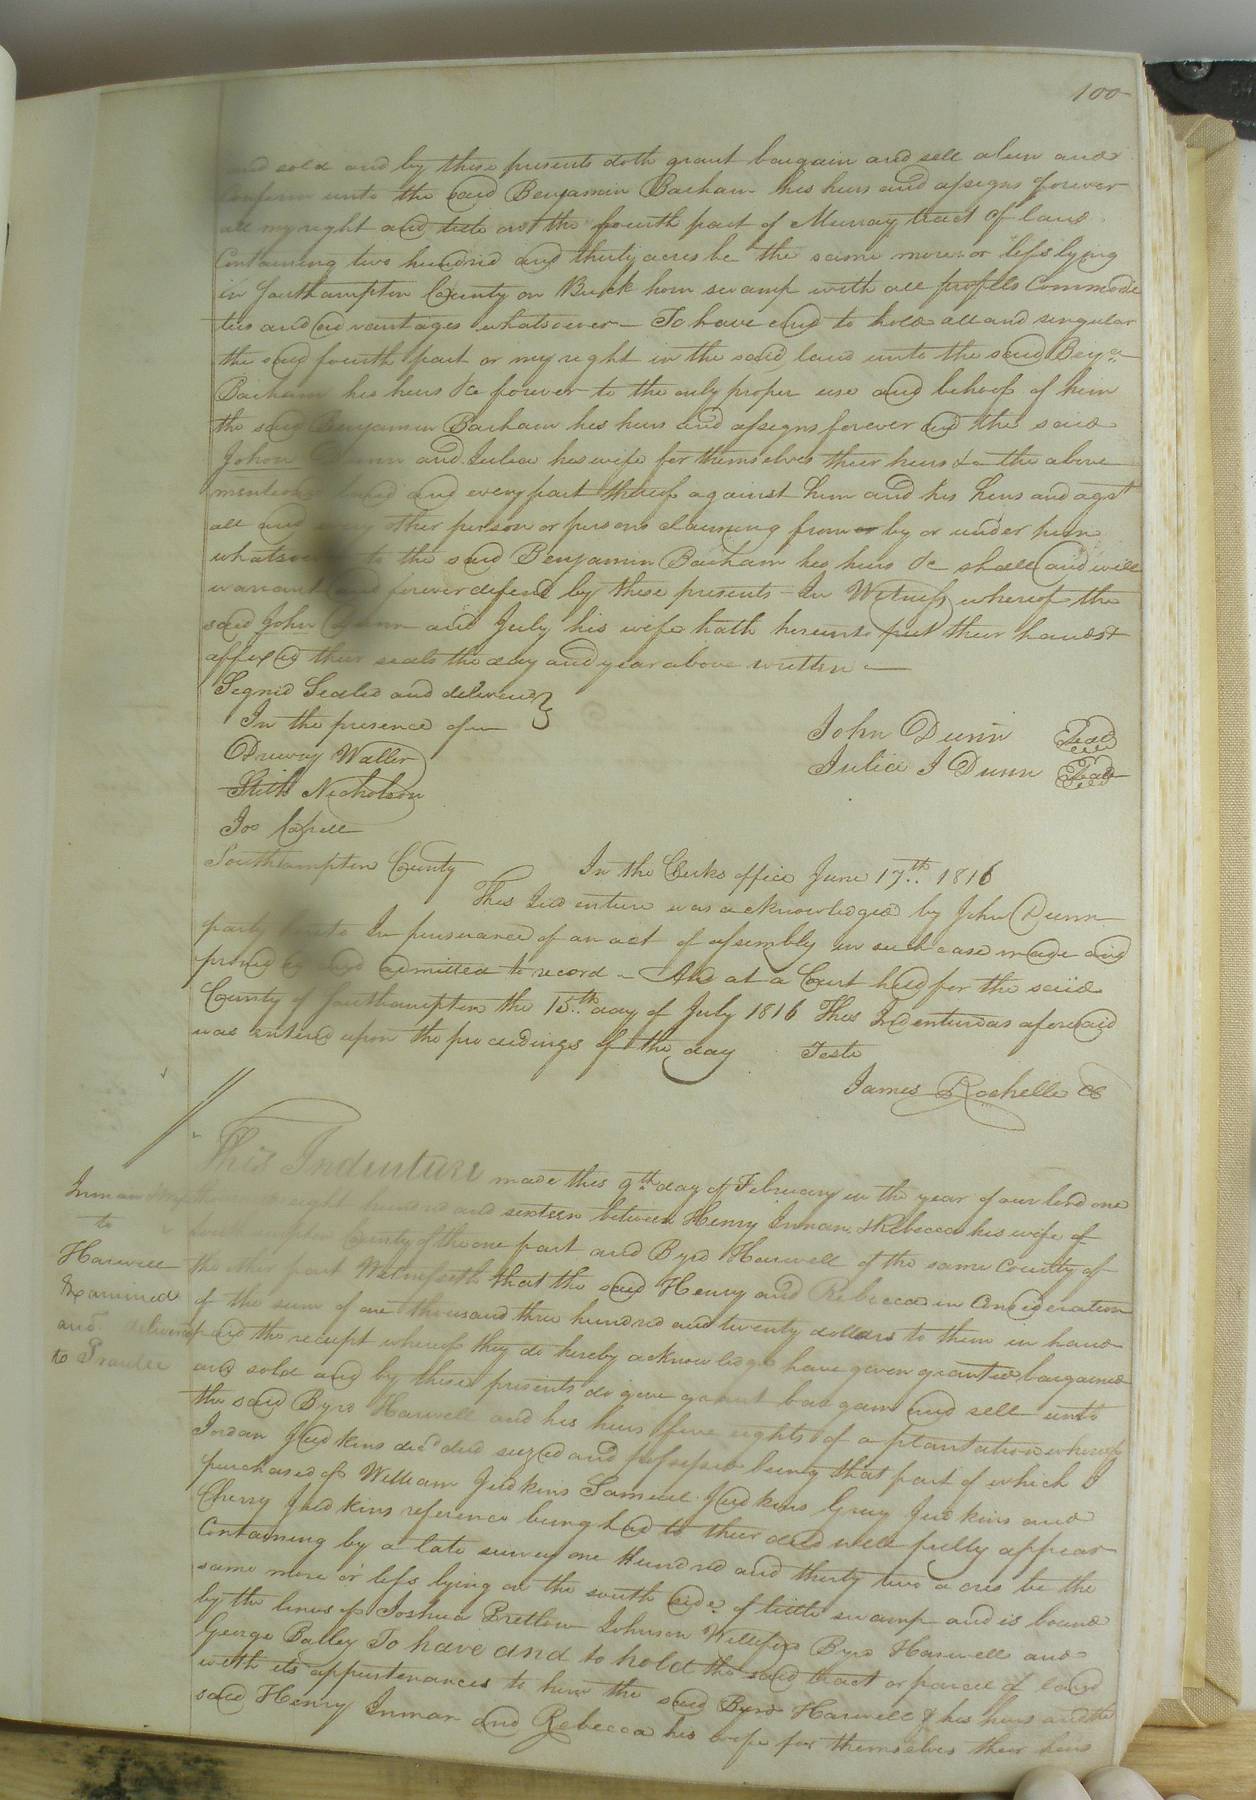 100
and sold and by these presents doth grant bargain and sell alien and
Confirm unto the said Benjamin Barham his heirs and assigns forever
all my right and title and the fourth part of Murray tract of land
Containing two hundred and thirty acres be the same more or less lying
in Southampton County on Buck horn swamp with all profits Commodi
ties and advantages whatsoever — To have and to hold all and singular
the said fourth part or my right in the said land unto the said Benja
Barham his heirs &c forever to the only proper use and behoof of him
the said Benjamin Barham his heirs and assigns forever and the said
John Dunn and Julia his wife for themselves their heirs &c the above
mentioned land and every part thereof against him and his heirs and agst
all and every other person or persons claiming from or by or under him
whatsoever to the said Benjamin Barham his heirs &c shall and will
warrant and forever defend by these presents — In Witness whereof the
said John Dunn and July his wife hath hereunto put their hands &
affixed their seals the day and year above written —
Signed Sealed and delivered }
In the presence of
John Dunn Seal
Drewry Waller
Julia J Dunn Seal
Stith Nicholson
Jos
Southampton County In the Clerks office June 17th 1816
This Indenture was acknowledged by John Dunn
party hereto In pursuance of an act of assembly in such case made and
provided and admitted to record — And at a Court held for the said
County of Southampton the 15th day of July 1816 This Indenture as aforesaid
was entered upon the proceedings of the day Teste
James Rochelle CC
This Indenture made this 9th day of February in the year of our lord one
Inman
to
Harwell
Examined
and delivered
to
thousand eight hundred and sixteen between Henry Inman & Rebecca his wife of
Southampton County of the one part and Byrd Harwell of the same County of
the other part Witnesseth that the said Henry and Rebecca in Consideration
of the sum of one thousand three hundred and twenty dollars to them in hand
paid the receipt whereof they do hereby acknowledge have given granted bargained
and sold and by these presents do give grant bargain and sell unto
the said Byrd Harwell and his heirs five eights of a plantation whereof
Jordan Judkins decd died seized and possessed being that part of which I
purchased of William Judkins Samuel Judkins Gray Judkins and
Cherry Judkins reference being had to their deed will fully appear
Containing by a late survey one Hundred and thirty two acres be the
same more or less lying on the south side of little swamp and is bound
by the lines of Joshua Pretlow Johnson Williford Byrd Harwell and
George Bailey To have and to hold the said tract or parcel of land
with its appurtenances to him the said Byrd Harwell & his heirs and the
said Henry Inman and Rebecca his wife for themselves their heirs